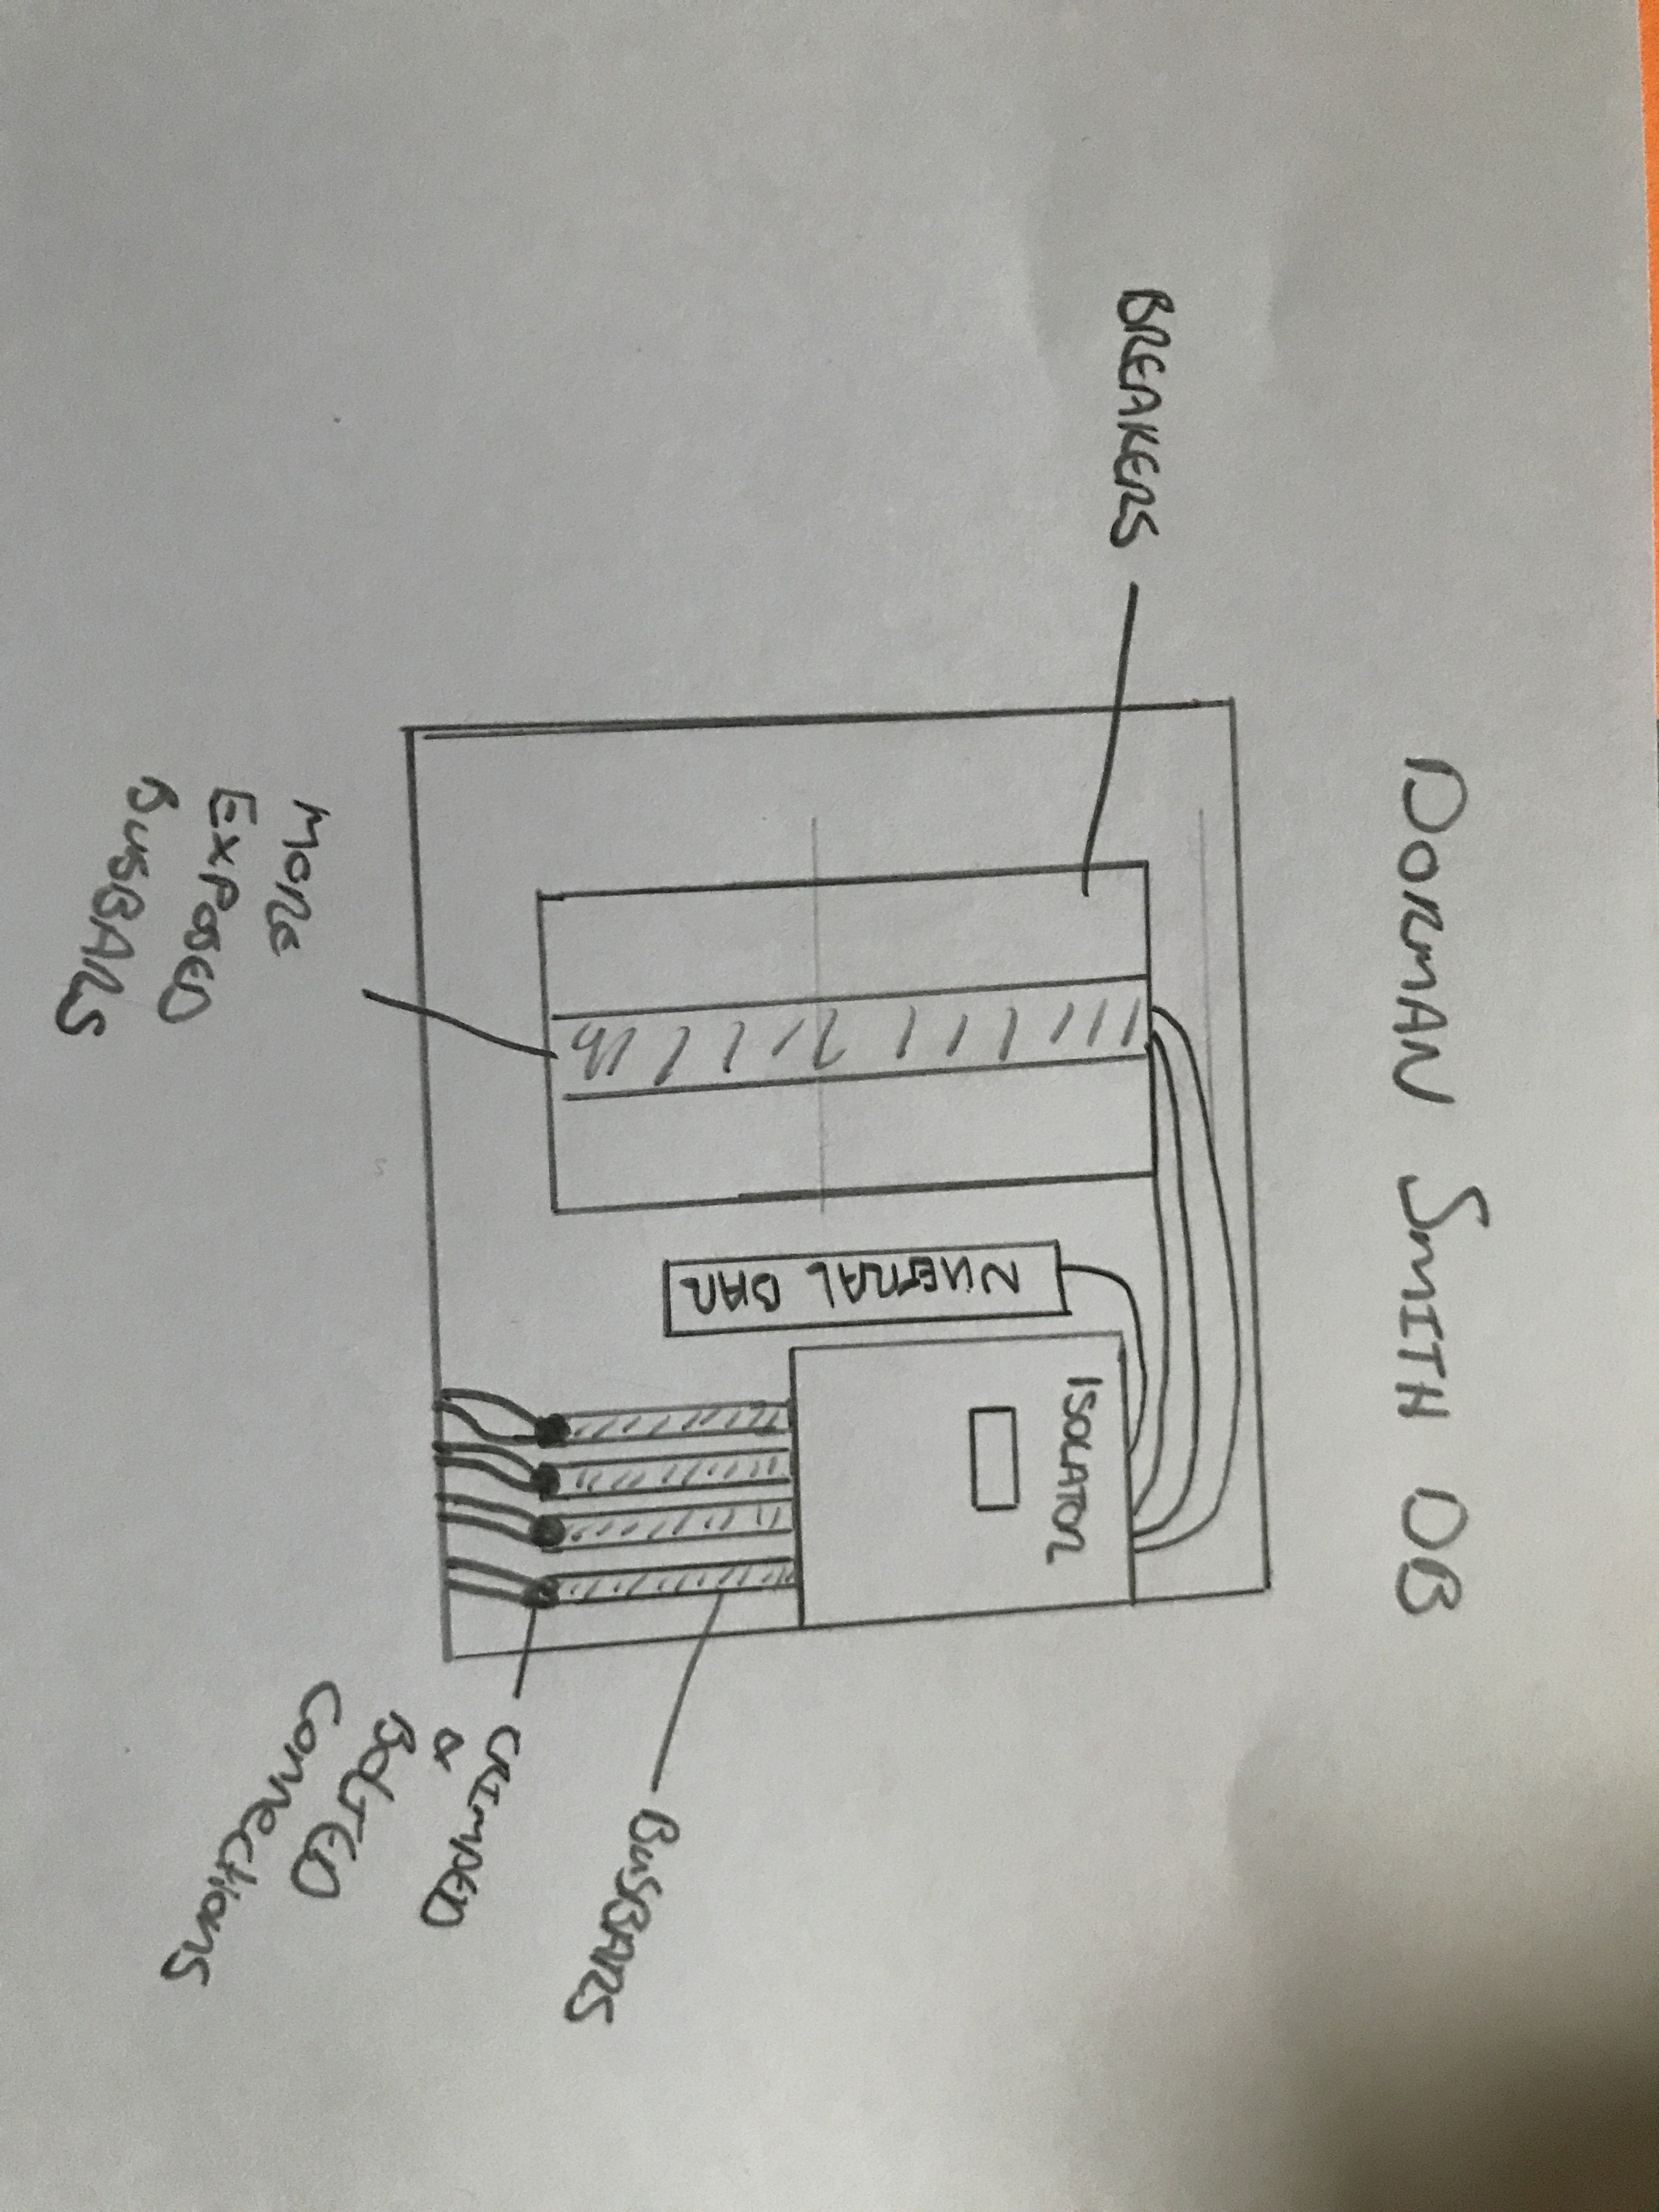 DORMAN SMITH DB
BREAKERS
ISOLATOR
NUETRAL BAR
MORE
EXPOSED
BUSBARS
BUSBARS
CRIMPED
&
BOLTED
Connections